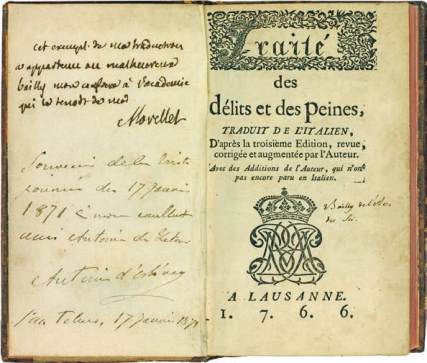 cet exempl. de ma traduction
a appartenu au malheureux
bailly mon confrere à l'academie
qui le tenoit de moi
Morellet
Souvenir de la triste
journée du 17 Janvier
1871 à mon excellent
ami Antoine de Latour
Antoine d'
17 janvier 1871
Traité
des
délits et des Peines,
TRADUIT DE L'ITALIEN,
D'après la troisième Edition, revue,
corrigée et augmentée par l'Auteur.
Avec des Additions de l'Auteur, qui n'ont
pas encore paru en Italien.
Bailly de l'
des Sci.
A LAUSANNE.
1. 7. 6. 6.